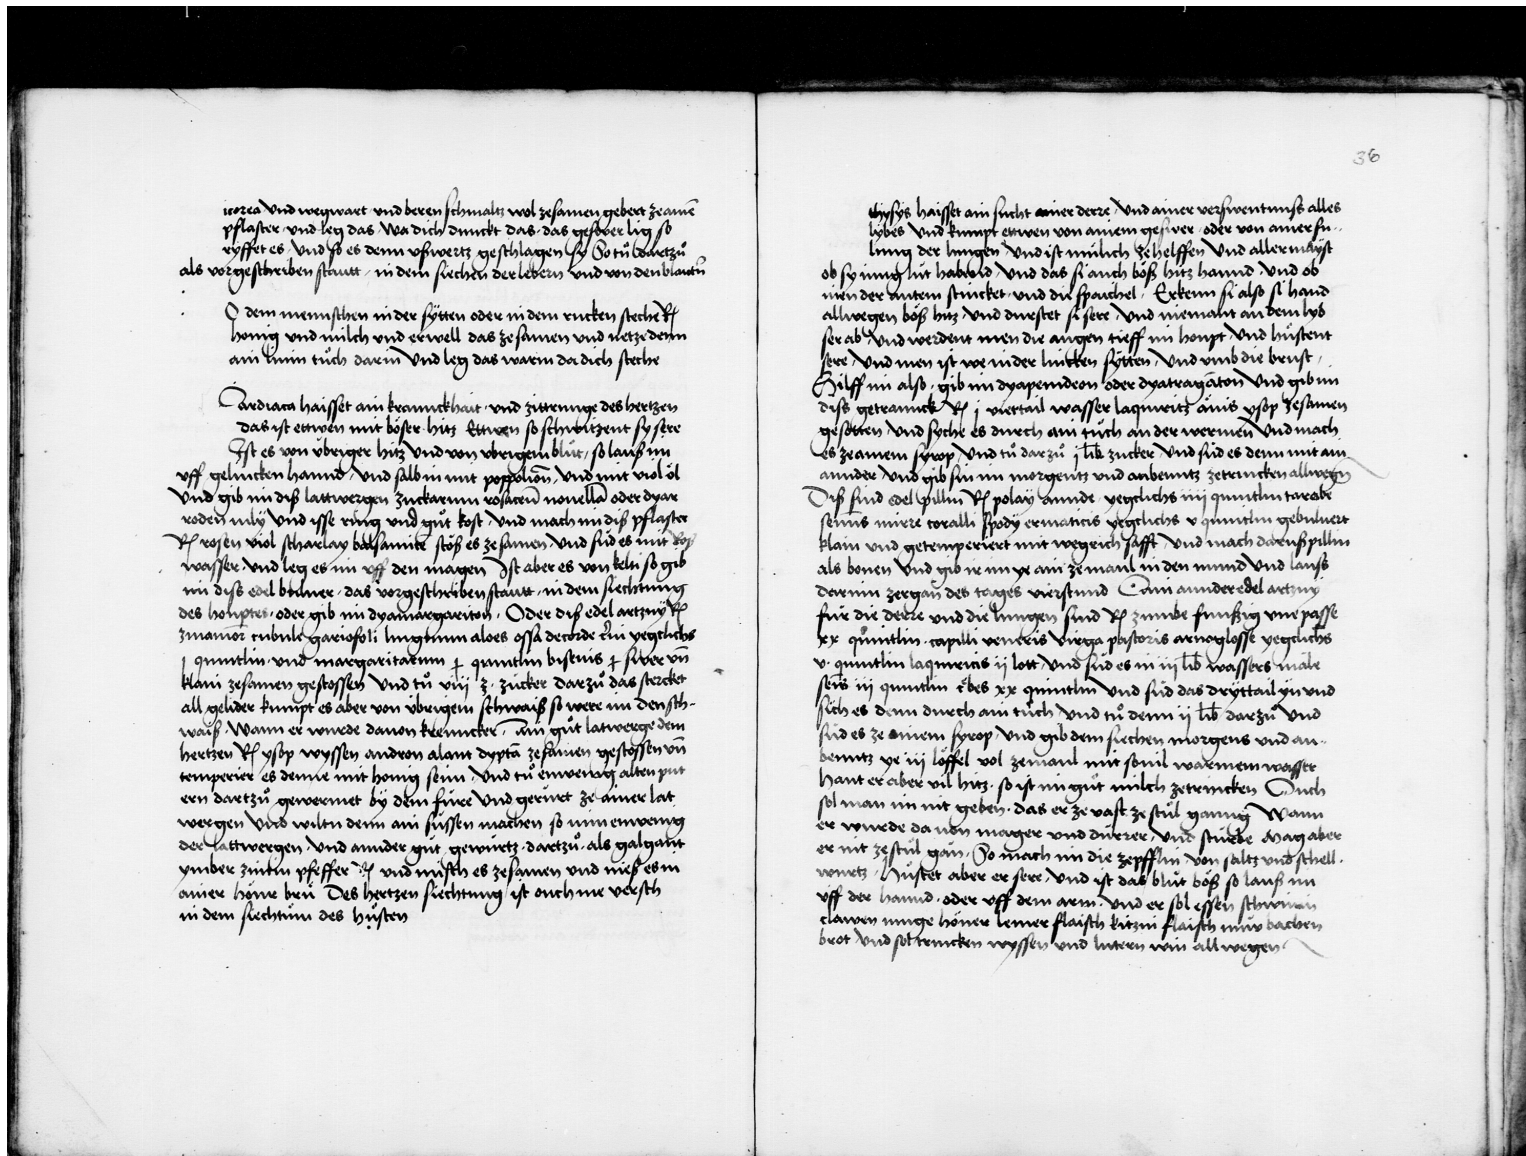 icorea vnd wegwart vnd beren schmaltz wol zesamen gebert ze ainē
pflaster vnd leg das wa dich dunckt das das geswer lig so
ryffet es Vnd so es denn vßwertz geschlagen sy So tů dartzů
als vorgeschriben staut in dem siechen der lebern vnd von den
O dem menschen in der sytten oder in dem rucken steche ℞
honig vnd milch vnd erwell das zesamen vnd netze denn
ain linin tůch darin Vnd leg das warm da dich steche
Cardiaca haisset ain kranckhait vnd zittrunge des hertzen
das ist ettwen mit böser hitz Ettwen so schwitzent sy sere
Ist es von übriger hitz vnd von übrigem blůt so lauß im
vff gelincken hannd Vnd salb in mit popolion Vnd mit viol öl
Vnd gib im diß lattwergen zuckarum rosaceū nouella oder dyar
roden iuly Vnd isse ring vnd gůt kost Vnd mach im diß pflaster
℞ rosen viol scharlay balsamite stöß es zesamen Vnd süd es mit
wasser Vnd leg es im vff den magen Ist aber es von keltin so gib
im diss edel buluer das vorgeschriben staut in dem siechtung
des houptes oder gib im dyamargariton Oder diß edel artzny ℞
lingnum aloes ossa decorde yegclichs
j quintlin vnd margaritarum quintlin vn̄
klain zesamen gestossen Vnd tů viij ʒ zucker darzů das stercket
all gelider kumpt es aber von übrigem schwaiß so were im den sch-
waiß Wann er wurde dauon krenncker Ain gůt latwerge dem
hertzen ℞ ysop wyssen andron alant dyptā zesamen gestossen vn̄
temperier es denne mit honig seim Vnd tů ein wenig alten
ern dartzů gewermet by dem füre Vnd gerüret ze ainer lat
wergen Vnd wiltu denn ain süssen machen so nim ein wenig
der lattwergen Vnd annder gůt gewürtz dartzů als galgant
ymber zimlin pfeffer ℞ vnd misch es zesamen vnd nieß es in
ainer höne brü Des hertzen siechtung ist ouch me versch
in dem siechtům des hůsten
36
thysys haisset ain sucht ainer derre Vnd ainer verswentnuß alles
lybes Vnd kumpt ettwen von ainem geswer oder von ainer fu-
lung der lungen Vnd ist mülich ze helffen Vnd aller mayst
ob sy iung lüt habend Vnd das si auch böß hitz hannd Vnd ob
inen der autem stincket vnd die spaichel Erkenn si also si hand
allwegen böß hitz Vnd durstet si sere Vnd niemant an dem lyb
ser ab Vnd werdent inen die augen tieff im houpt Vnd hůstent
sere Vnd inen ist we in der lincken sytten Vnd vmb die brust
Hilff im also gib im dyapenideon oder dyatragāton Vnd gib im
diss getrannck ℞ j viertail wasser laquiritz änis ysop zesamen
gesotten Vnd syche es durch ain tůch an der wermen Vnd mach
es ze ainem syrop Vnd tů darzů j lib zucker Vnd süd es denn mit ain
annder Vnd gib sin im morgentz vnd aubentz ze trincken allwegen
Diß sind edel pillin ℞ polay yegclichs iiij quintlin
mirre coralli spody yegclichs v quintlin gebuluert
klain vnd getemperiert mit wegrich safft Vnd mach daruß pillin
als bonen Vnd gib ir im ye ain zemaul in den mund Vnd lauß
darinn zergan des tages vierstund Ain annder edel artzny
für die derre vnd die lungen sind ℞ fünffzig vue passe
xx quintlin capilli veneris virga pastoris arnoglosse yegclichs
v quintlin laquiricis ij lott Vnd süd es in iij lib wassers
iij quintlin xx quintlin Vnd süd das dryttail yn vnd
sich es denn durch ain tůch Vnd tů denn ij lib darzů Vnd
süd es ze ainem syrop Vnd gib dem siechen morgens vnd au-
benntz ye iij löffel vol zemaul mit souil warmem wasser
Haut er aber vil hitz so ist im gůt milch zetrincken Ouch
sol man im nit geben das er ze vast ze stůl ganng Wann
er wurde da von mager vnd dürrer Vnd sturbe Mag aber
er nit ze stůl gän So mach im die zepfflin von saltz vnd schell
wurtz Hůstet aber er sere Vnd ist das blůt böß so lauß im
vff der hannd oder vff dem arm Vnd er sol essen schwinin
clawen iunge höner lemer flaisch kitzin flaisch nuw bachen
brot Vnd sol trincken wyssen vnd lutern win allwegen